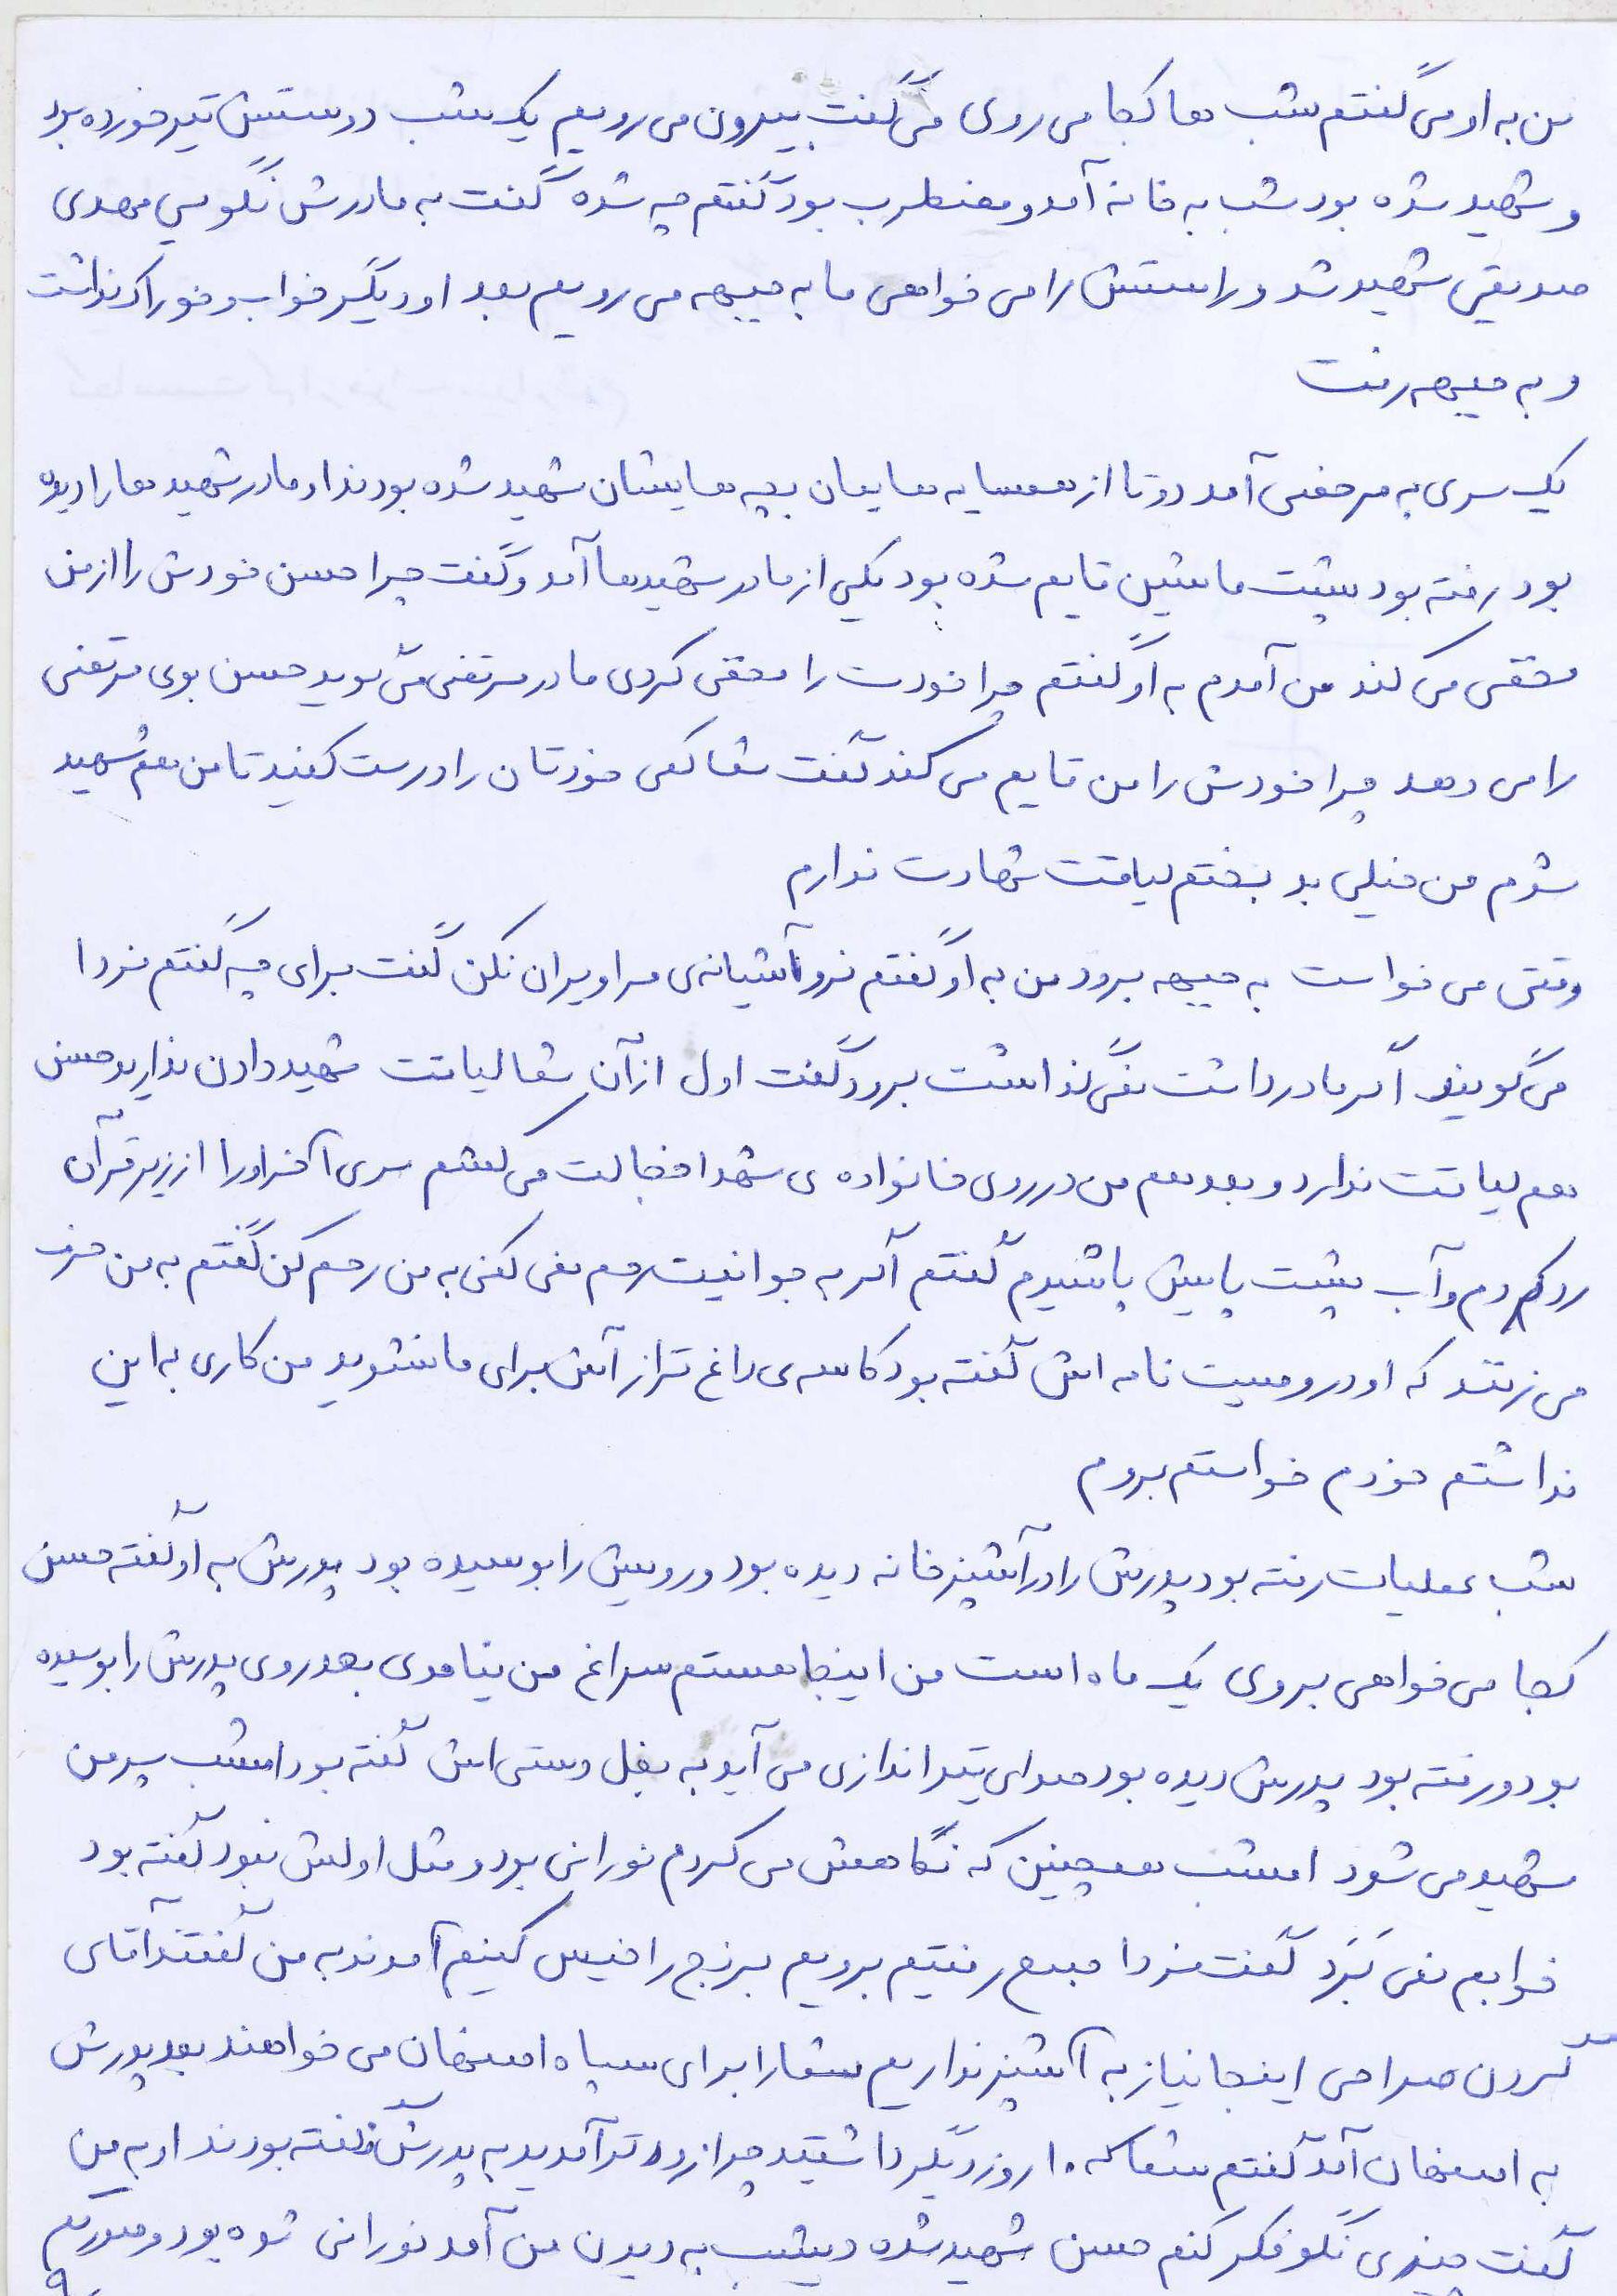 من به او می گفتم شب ها کجا می روی می گفت بیرون می رویم یک شب دوستش تیر خورده بود
و شهید شده بود شب به خانه آمد و مضطرب بود گفتم چه شده گفت به مادرش نگویی مهدی
صدیقی شهید شد و راستش را می خواهی ما به جبهه می رویم بعد او دیگر خواب و خوراک نداشت
و به جبهه رفت
یک سری به مرخصی آمد دو تا از همسایه هایمان بچه هایشان شهید شده بودند او مادر شهید ها را دیده
بود رفته بود پشت ماشین قایم شده بود یکی از مادر شهیدها آمد و گفت چرا حسن خودش را از من
مخفی می کند من آمدم به او گفتم چرا خودت را مخفی کردی مادر مرتضی می گوید حسن بوی مرتضی
را می دهد چرا خودش را من قایم می کند گفت شما کمی خودتان را درست کنید تا من هم شهید
شوم من خیلی بد بختم لیاقت شهادت ندارم
وقتی می خواست به جبهه برود من به او گفتم نرو آشیانه ی مرا ویران نکن گفت برای چه گفتم فردا
می گویند اگر مادر داشت نمی گذاشت برود گفت اول از آن شما لیاقت شهید دادن ندارید حسن
هم لیاقت ندارد و بعد هم من در روی خانواده ی شهدا خجالت می کشم سری آخر او را از زیر قرآن
رد کردم و آب پشت پایش پاشیدم گفتم اگر به جوانیت رحم نمی کنی به من رحم کن گفتم به من حرف
می زنند که او در وصیت نامه اش گفته بود کاسه ی داغ تر از آش برای ما نشوید من کاری به این
نداشتم خودم خواستم بروم
شب عملیات رفته بود پدرش را در آشپزخانه دیده بود و رویش را بوسیده بود پدرش به او گفته حسن
کجا می خواهی بروی یک ماه است من اینجا هستم سراغ من نیامدی بعد روی پدرش را بوسیده
بود و رفته بود پدرش دیده بود صدای تیراندازی می آید به بغل دستی اش گفته بود امشب پسر من
شهید می شود امشب همچنین که نگاهش می کردم نورانی بود و مثل اولش نبود گفته بود
خوابم نمی بَرَد گفت فردا صبح رفتیم برویم برنج را خیس کنیم آمدند به من گفتند آقای
گردن صراحی اینجا نیاز به آشپز نداریم شما را برای سپاه اصفهان می خواهند بعد پدرش
به اصفهان آمد گفتم شما که ۱۰ روز دیگر داشتید چرا زودتر آمدید به پدرش نگفته بودند او به من
گفت چیزی نگو فکر کنم حسن شهید شده دیشب به دیدن من آمد نورانی شده بود و صورتم